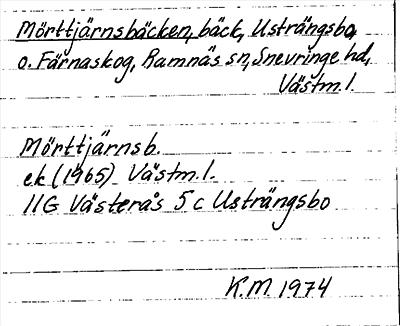 Mörttjärnsbäcken, bäck, Usträngsbo,
o. Färnaskog, Ramnäs sn, Snevringe hd,
Västm.l.
Mörttjärnsb.
ek (1965) Västm.l.
11G Västerås 5 c Usträngsbo
K.M 1974